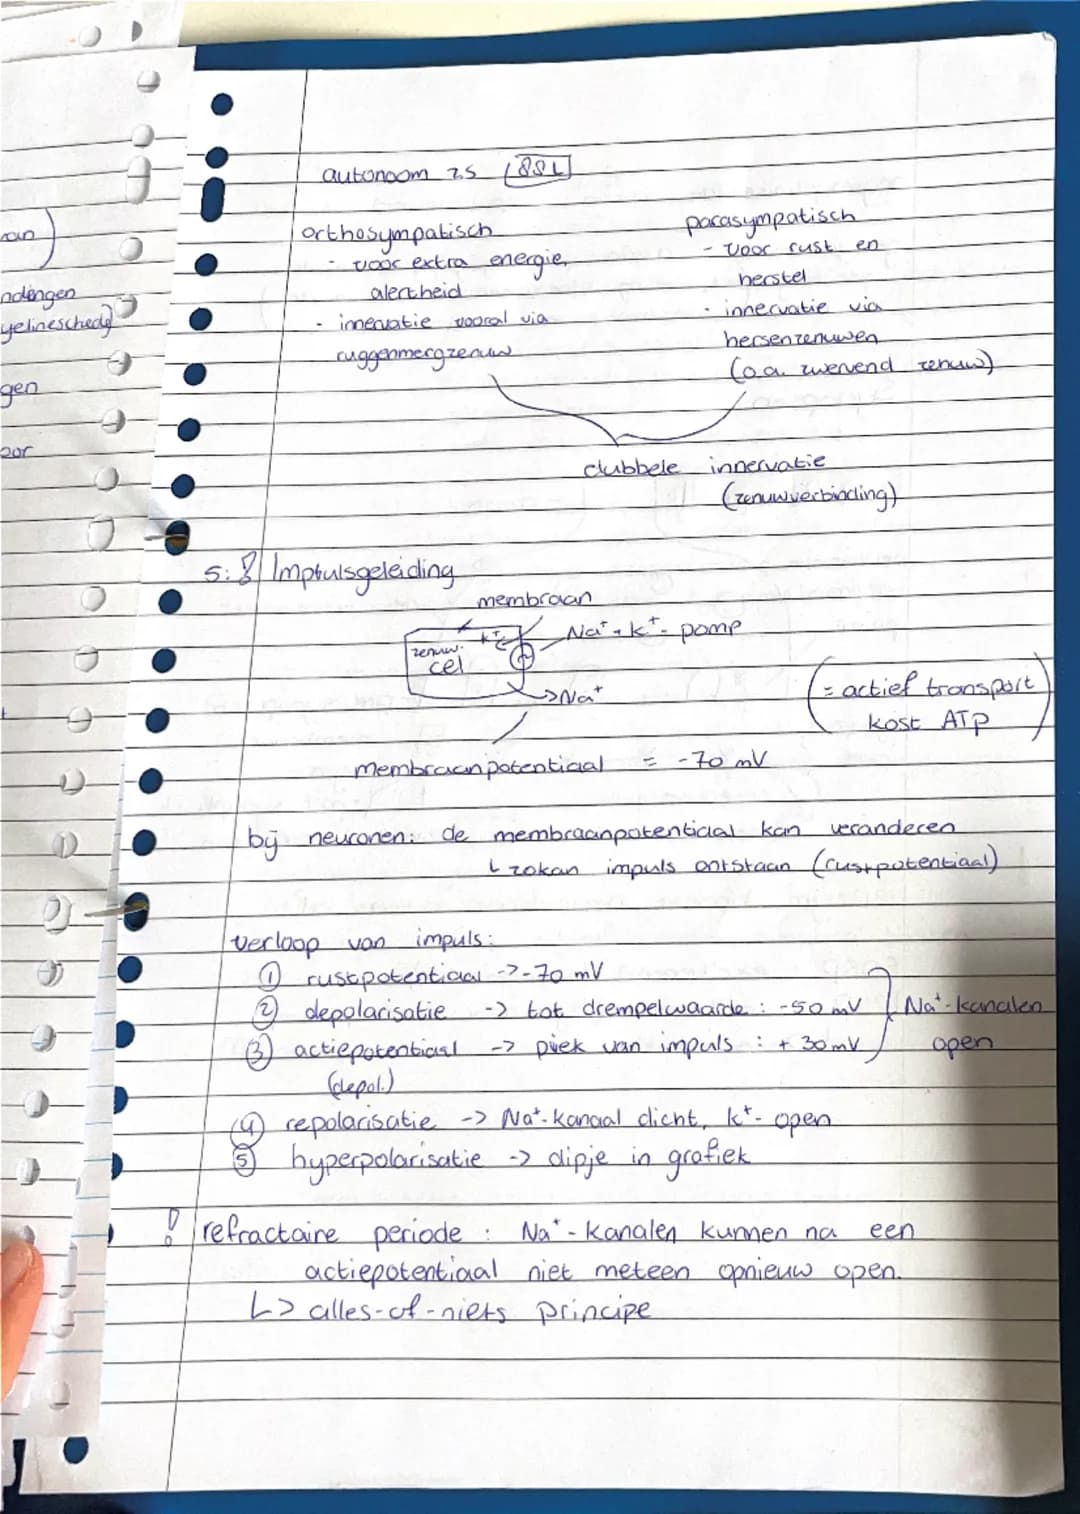 autonoom z.s 88L
orthosympatisch
- voor extra energie,
alertheid
- innervatie vooral via
ruggenmergzenuw
parasympatisch
- voor rust en
herstel
- innervatie via
hersenzenuwen
(o.a. zwervend zenuw)
dubbele innervatie
(zenuwverbinding)
5: Impulsgeleiding
membraan
K+ Na+ + K+ - pomp
zenuw.
cel
->Na+
(= actief transport
kost ATP)
membraanpotentiaal = -70 mV
bij neuronen: de membraanpotentiaal kan veranderen
↳ zo kan impuls ontstaan (rustpotentiaal)
verloop van impuls:
① rustpotentiaal -> -70 mV
② depolarisatie -> tot drempelwaarde : -50 mV
③ actiepotentiaal -> piek van impuls : + 30 mV
(depol.)
Na+-kanalen
open
④ repolarisatie -> Na+-kanaal dicht, K+- open
⑤ hyperpolarisatie -> dipje in grafiek
! refractaire periode : Na+ - kanalen kunnen na een
actiepotentiaal niet meteen opnieuw open.
↳> alles-of-niets principe
ndingen
yelineschede)
gen